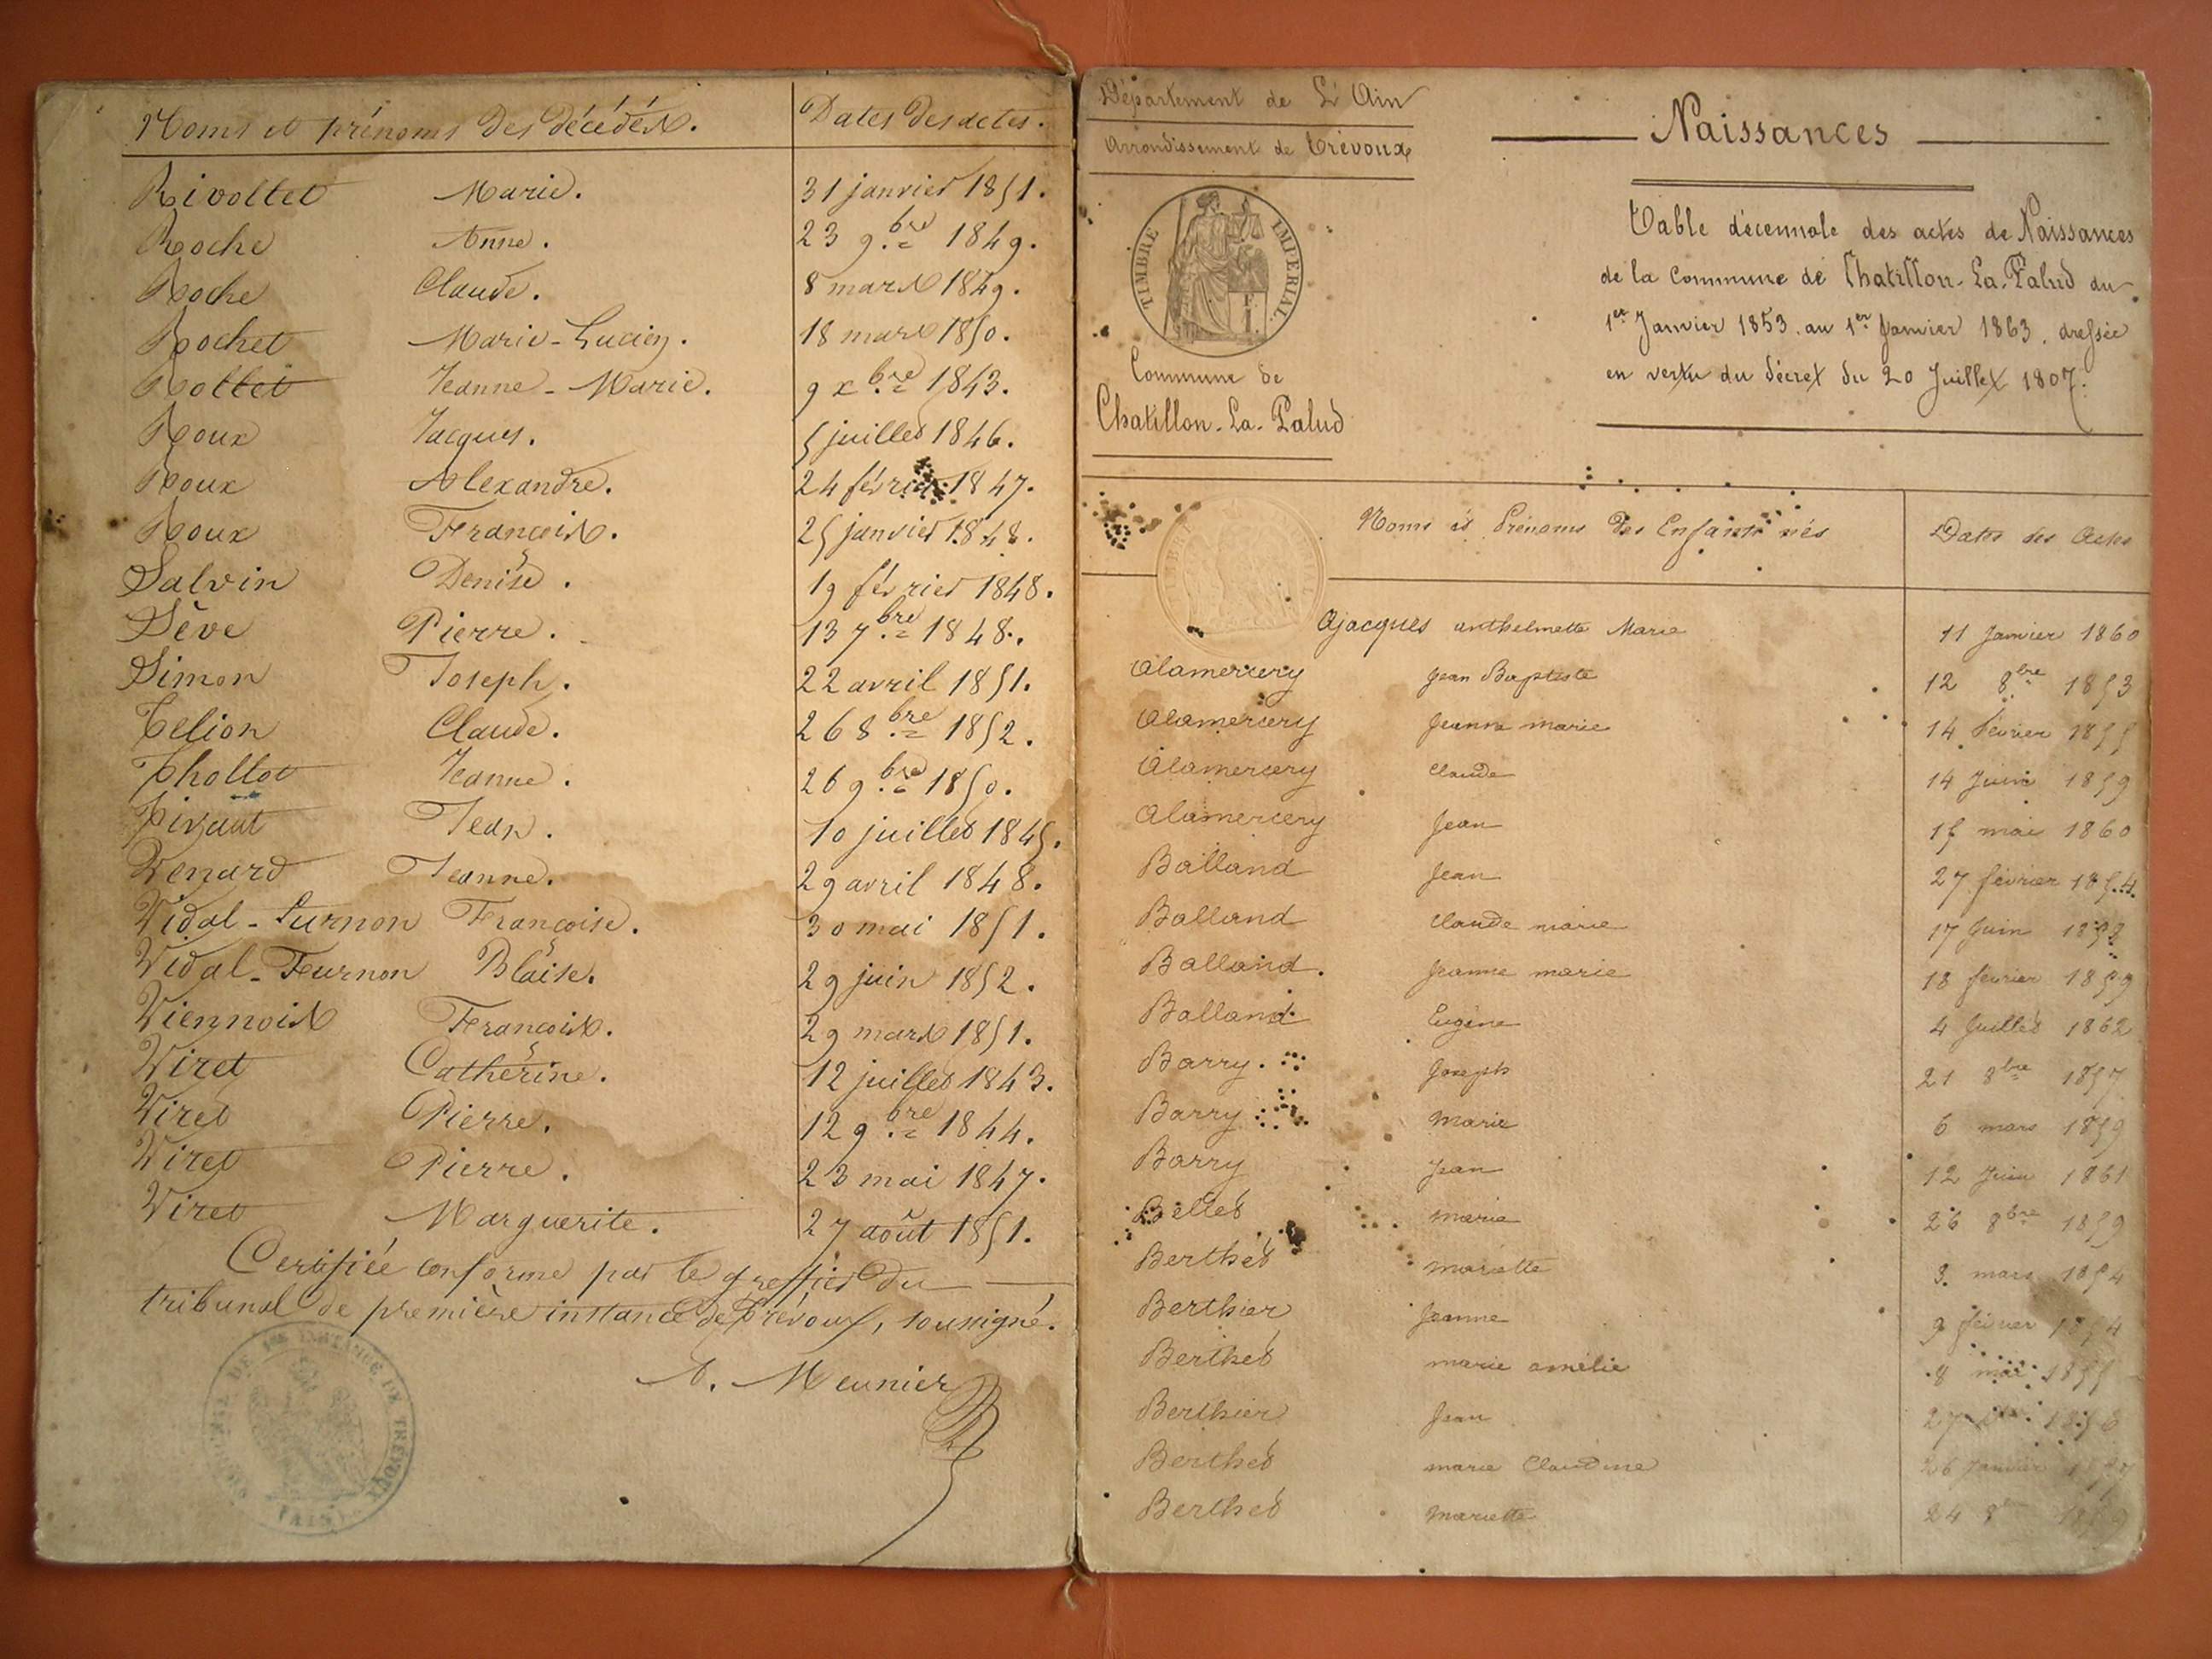 Noms et prénoms des décédés. Dates des actes.
Rivollet Marie. 31 janvier 1851.
Roche Anne. 23 9.bre 1849.
Roche Claude. 8 mars 1849.
Rochet Marie-Lucien. 18 mars 1850.
Rollet Jeanne-Marie. 9 xbre 1843.
Roux Jacques. 5 juillet 1846.
Roux Alexandre. 24 février 1847.
Roux François. 25 janvier 1848.
Salvin Denise. 19 février 1848.
Sève Pierre. 13 7.bre 1848.
Simon Joseph. 22 avril 1851.
Telion Claude. 26 8.bre 1852.
Thollot Jeanne. 26 9.bre 1850.
Jean. 10 juillet 1845.
Venard Jeanne. 29 avril 1848.
Vidal-Furnon Françoise. 30 mai 1851.
Vidal-Furnon Blaise. 29 juin 1852.
Viennois François. 29 mars 1851.
Viret Catherine. 12 juillet 1843.
Viret Pierre. 12 9.bre 1844.
Viret Pierre. 23 mai 1847.
Viret Marguerite. 27 août 1851.
Certifiée conforme par le greffier du
tribunal de première instance de Trévoux, soussigné.
Meunier
TRIBUNAL DE 1ERE INSTANCE DE TREVOUX (AIN)
Département de L'Ain
Arrondissement de Trévoux
TIMBRE IMPERIAL
Commune de
Chatillon-La-Palud
Naissances
Table décennale des actes de Naissances
de la Commune de Chatillon-La-Palud du
1er Janvier 1853 au 1er Janvier 1863, dressée
en vertu du décret du 20 Juillet 1807.
Noms et Prénoms des Enfants nés Dates des Actes
Ajacques anthelmette Marie 11 Janvier 1860
Alamercery Jean Baptiste 12 8bre 1853
Alamercery Jeanne marie 14 février 1855
Alamercery Claude 14 Juin 1859
Alamercery Jean 15 mai 1860
Balland Jean 27 février 1854.
Balland Claude marie 17 Juin
Balland. Jeanne marie 18 février 1859
Balland Eugène 4 Juillet 1862
Barry. Joseph 21 8bre 1857
Barry marie 6 mars 1859
Barry Jean 12 Juin 1861
Bellet marie 26 8bre 1859
Berthet mariette 3. mars 1854
Berthier Jeanne 9 février 1854
Berthet marie amélie 8 mai 1855
Berthier Jean 27 1856
Berthet marie Claudine 26 Janvier 1857
Berthet mariette 24 1859